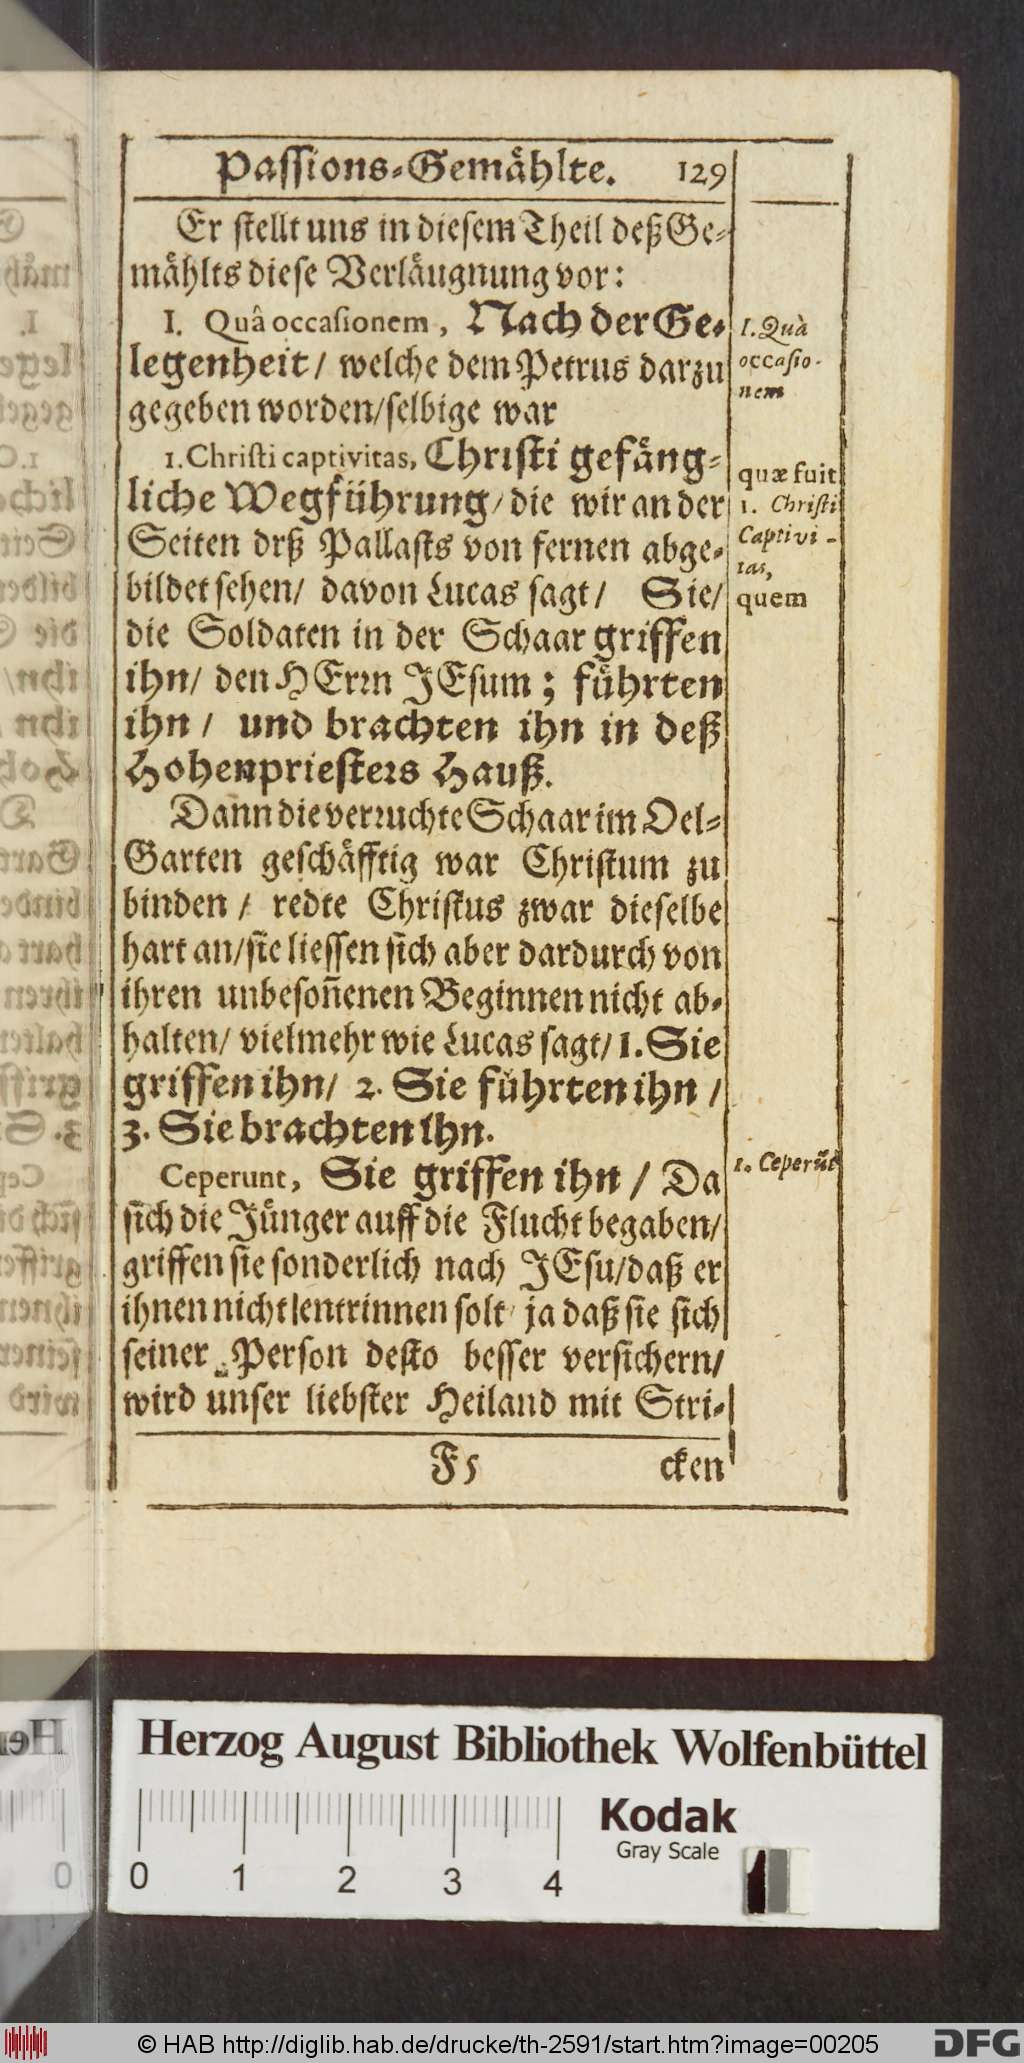 Passions-Gemåhlte. 129
Er stellt uns in diesem Theil deß Ge-
måhlts diese Verlåugnung vor:
I. Quâ occasionem, Nach der Ge-
legenheit/ welche dem Petrus darzu
gegeben worden/selbige war
1. Christi captivitas, Christi gefång-
liche Wegführung/ die wir an der
Seiten drß Pallasts von fernen abge-
bildet sehen/ davon Lucas sagt/ Sie/
die Soldaten in der Schaar griffen
ihn/ den HErrn JEsum; führten
ihn/ und brachten ihn in deß
Hohenpriesters Hauß.
Dann die verruchte Schaar im Oel-
Garten geschåfftig war Christum zu
binden/ redte Christus zwar dieselbe
hart an/sie liessen sich aber dardurch von
ihren unbesoñenen Beginnen nicht ab-
halten/ vielmehr wie Lucas sagt/ 1. Sie
griffen ihn/ 2. Sie führten ihn/
3. Sie brachten ihn.
Ceperunt, Sie griffen ihn/ Da
sich die Jünger auff die Flucht begaben/
griffen sie sonderlich nach JEsu/daß er
ihnen nicht entrinnen solt/ ja daß sie sich
seiner Person desto besser versichern/
wird unser liebster Heiland mit Stri-
F5 cken
I. Quà
occasio-
nem
quæ fuit
1. Christi
Captivi-
tas,
quem
1. Ceperũt
Herzog August Bibliothek Wolfenbüttel
0 1 2 3 4
Kodak
Gray Scale
© HAB http://diglib.hab.de/drucke/th-2591/start.htm?image=00205
DFG